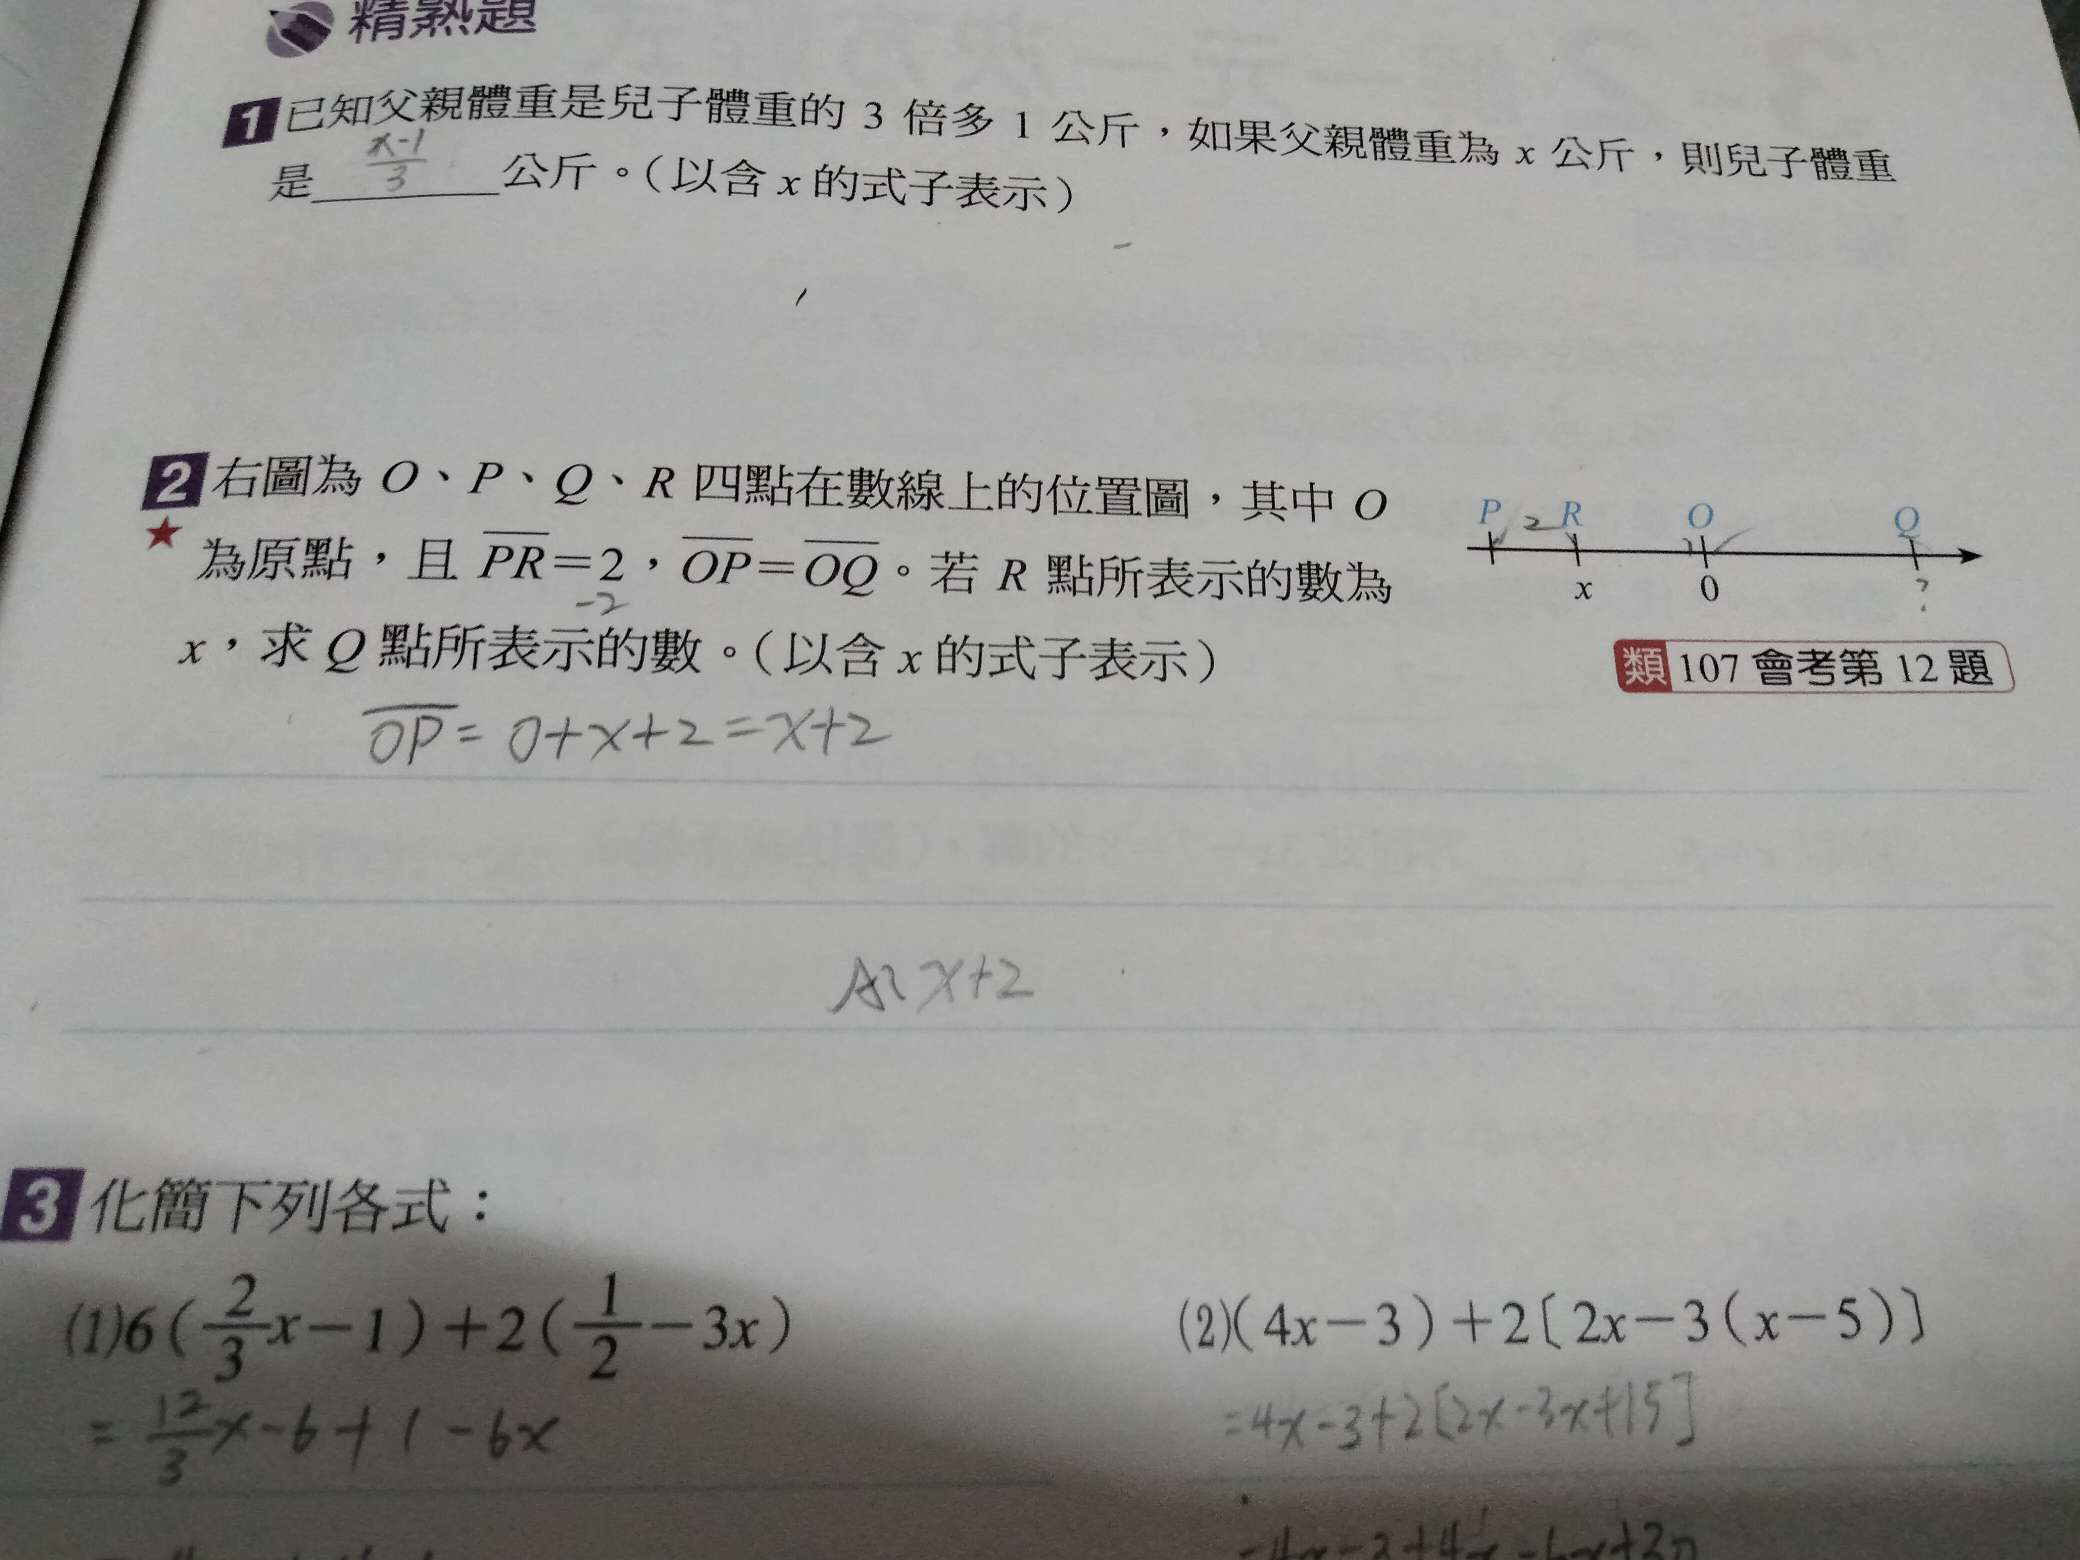 精熟題
1 已知父親體重是兒子體重的 3 倍多 1 公斤，如果父親體重為 x 公斤，則兒子體重
是 (x-1)/3 公斤。（以含 x 的式子表示）
2 右圖為 O、P、Q、R 四點在數線上的位置圖，其中 O
★ 為原點，且 PR＝2，OP＝OQ。若 R 點所表示的數為
-2
x，求 Q 點所表示的數。（以含 x 的式子表示）
P 2 R O Q
x 0 ?
類 107 會考第 12 題
OP = 0+x+2 = x+2
A: x+2
3 化簡下列各式：
(1) 6(2/3 x－1)＋2(1/2－3x)
= 12/3 x - 6 + 1 - 6x
(2) (4x－3)＋2〔2x－3(x－5)〕
= 4x-3+2[2x-3x+15]